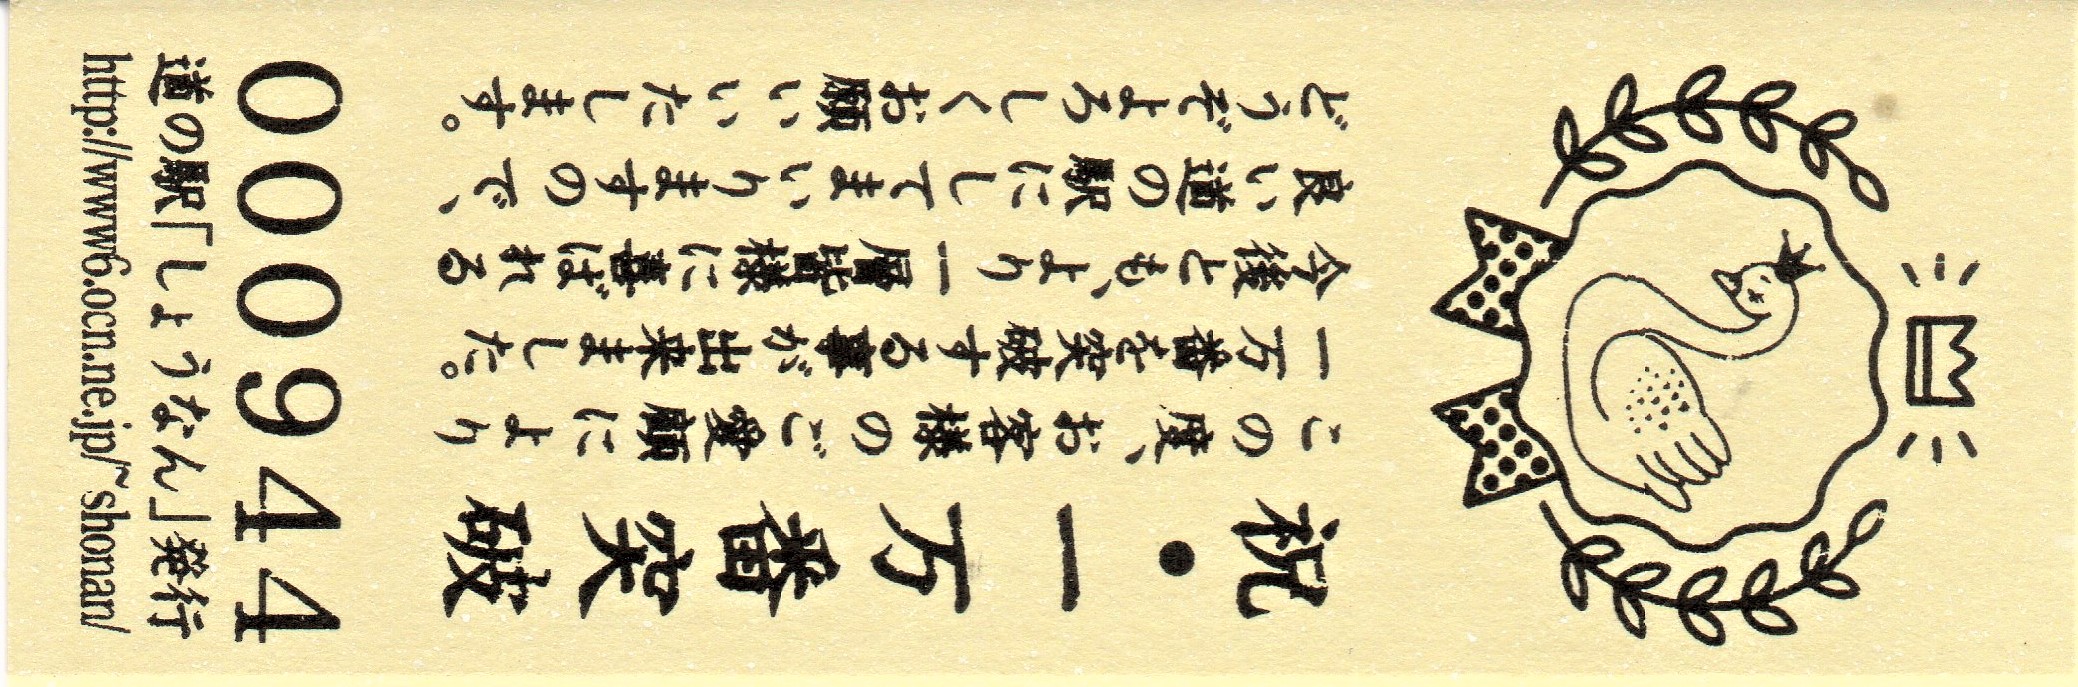 祝・一万番突破
この度、お客様のご愛顧により
一万番を突破する事が出来ました。
今後とも、より一層皆様に喜ばれる
良い道の駅にしてまいりますので、
どうぞよろしくお願いいたします。
000944
道の駅「しょうなん」発行
http://www6.ocn.ne.jp/~shonan/